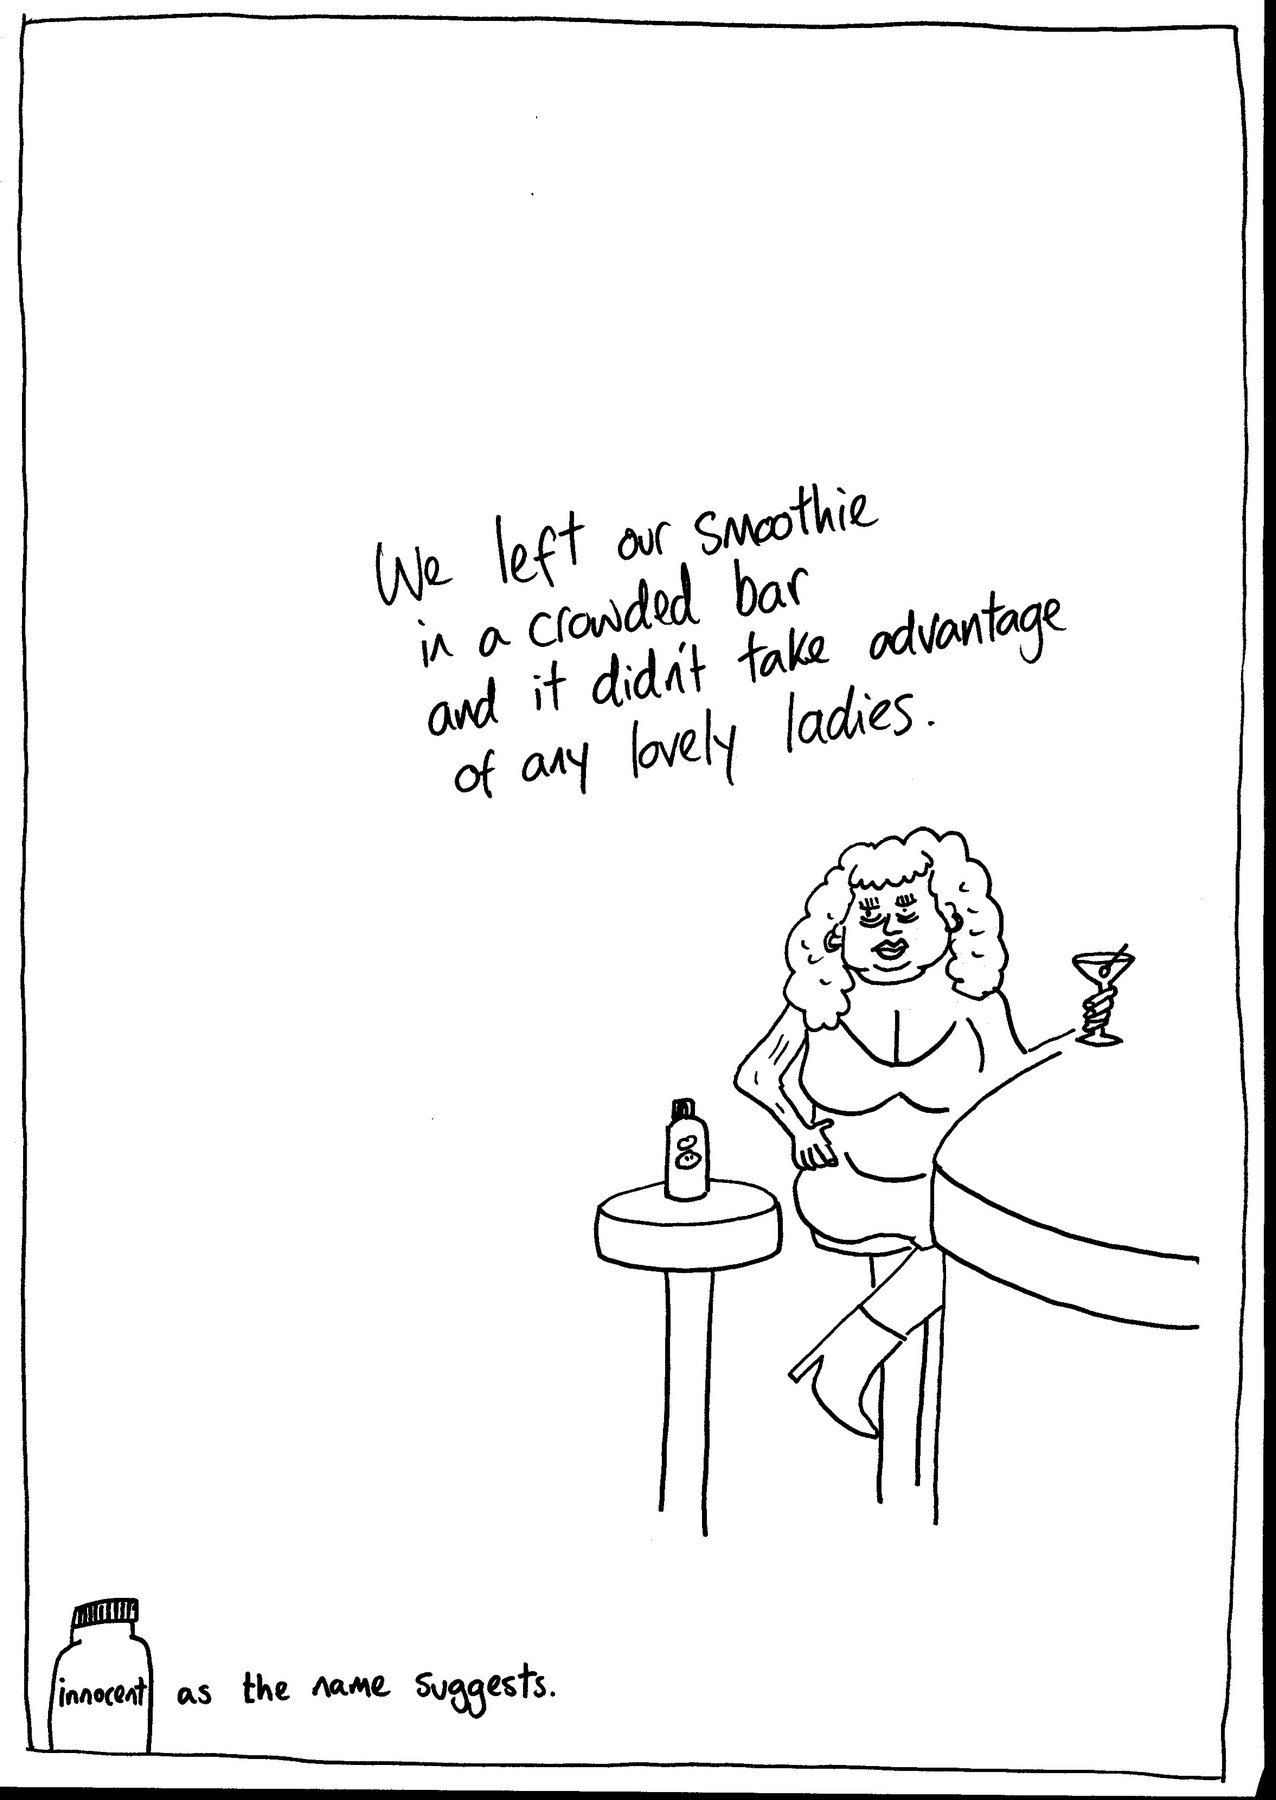 We left our smoothie
in a crowded bar
and it didn't take advantage
of any lovely ladies.
innocent as the name suggests.